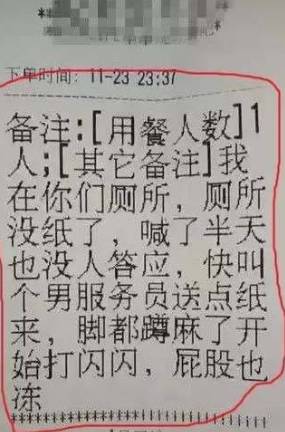 下单时间: 11-23 23:37
备注:[用餐人数]1
人;[其它备注]我
在你们厕所，厕所
没纸了，喊了半天
也没人答应，快叫
个男服务员送点纸
来，脚都蹲麻了开
始打闪闪，屁股也
冻